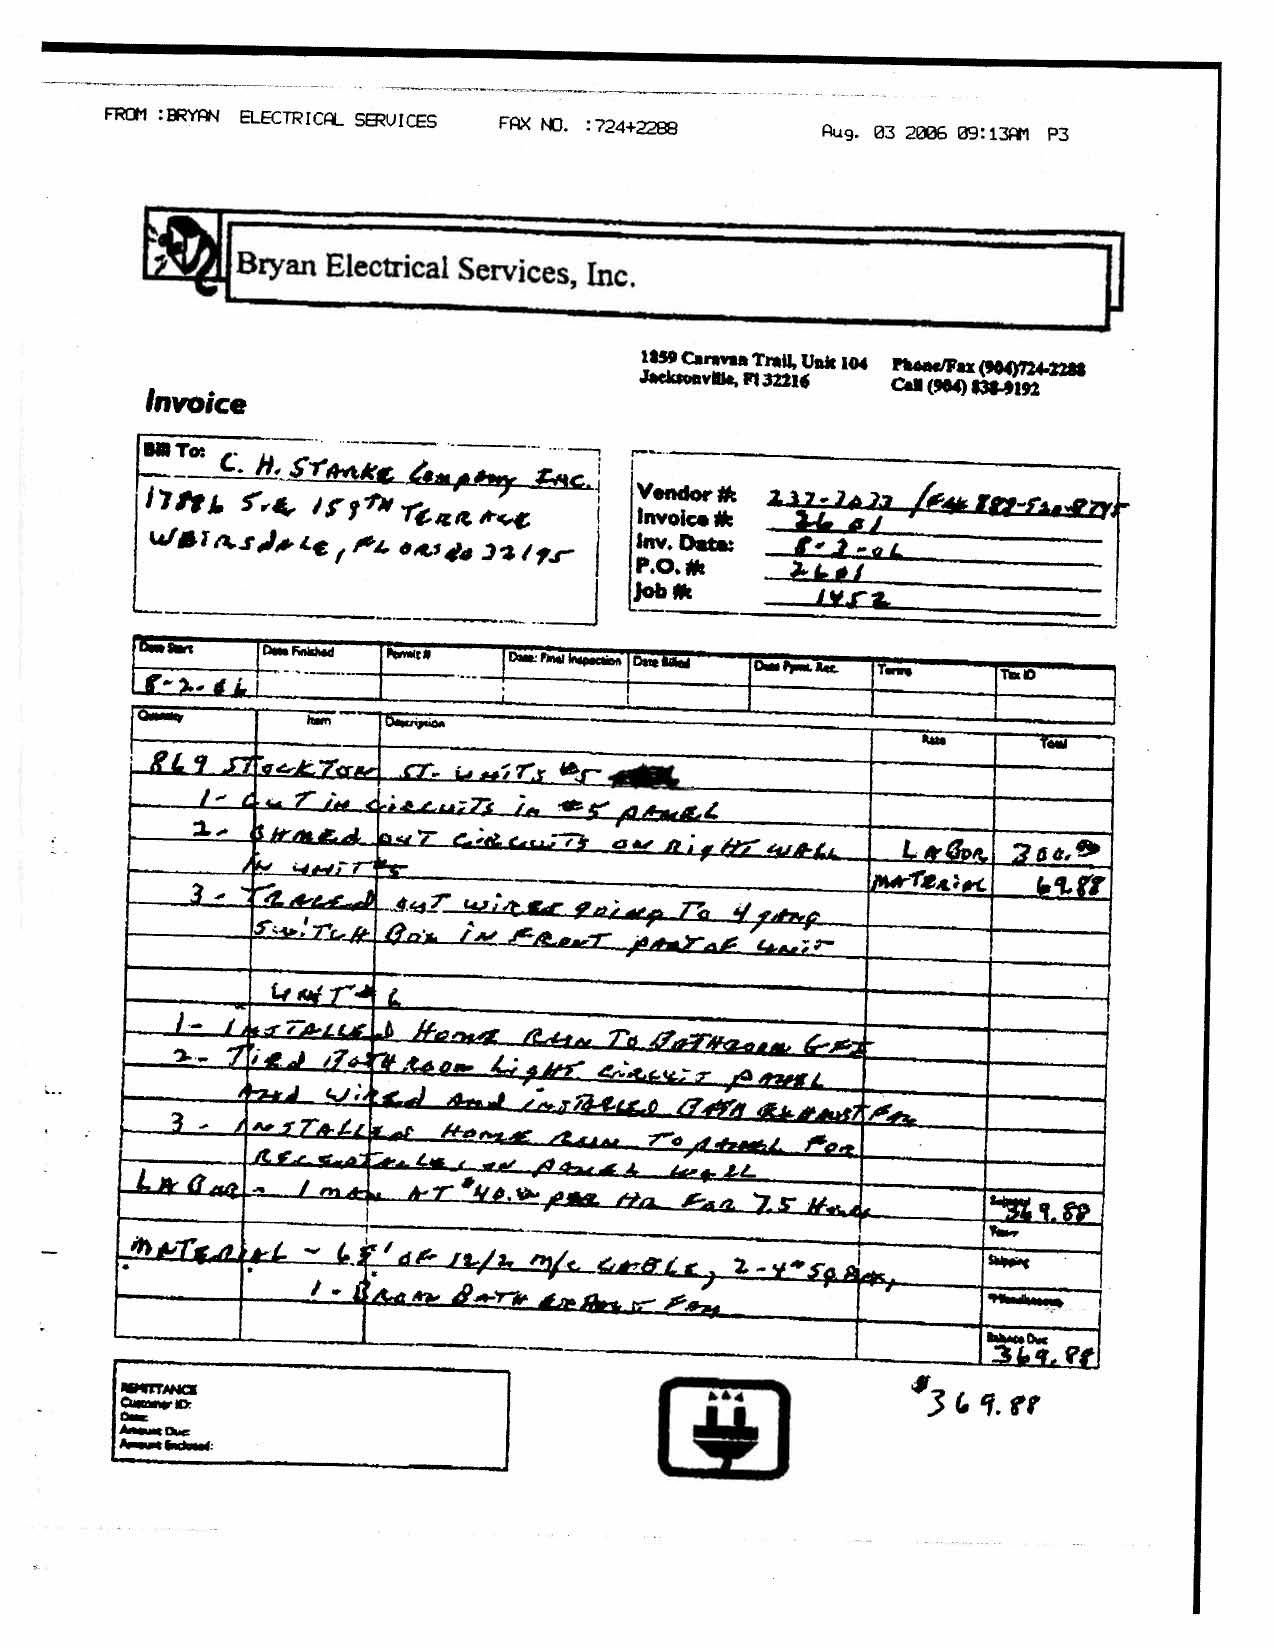 FROM :BRYAN ELECTRICAL SERVICES FAX NO. :724+2288 Aug. 03 2006 09:13AM P3
Bryan Electrical Services, Inc.
1859 Caravan Trail, Unit 104 Phone/Fax (904)724-2288
Jacksonville, Fl 32216 Cell (904) 838-9192
Invoice
Bill To: C. H. STARKE Company INC.
17886 S.E 159TH TERRACE
32195
Vendor #: 237-2022 / FAX
Invoice #: 2601
Inv. Date: 8-2-06
P.O. #: 2601
Job #: 1452
Date Start Date Finished Permit # Date: Final Inspection Date Billed Date Pymt. Rec. Terms Tax ID
8-2-06
Quantity Item Description Rate Total
869 STOCKTON ST. UNITS #5
1- CUT IN CIRCUITS in #5 PANEL
2- OHMED OUT CIRCUITS ON RIGHT WALL LABOR 300.00
IN UNIT #5 MATERIAL 69.88
3- TRACED OUT WIRES going To 4 gANg
SWiTCH BOX IN FRONT PART OF UNIT
UNIT # 6
1- INSTALLED HOME RUN TO BATHROOM GFI
2- TIED BATHROOM LIGHT CIRCUIT PANEL
AND WIRED AND INSTALLED BATH EXHAUST FAN
3- INSTALLED HOME RUN TO PANEL FOR
RECEPTACLES IN PANEL WALL
LABOR - 1 MAN AT $40.00 PER HR FOR 7.5 HOURS Subtotal 369.88
Taxes
MATERIAL - 68' OF 12/2 M/C CABLE, 2-4" SQ BOX, Shipping
1- BROAN BATH EXHAUST FAN Miscellaneous
Balance Due
369.88
$369.88
REMITTANCE
Customer ID:
Date:
Amount Due:
Amount Enclosed: